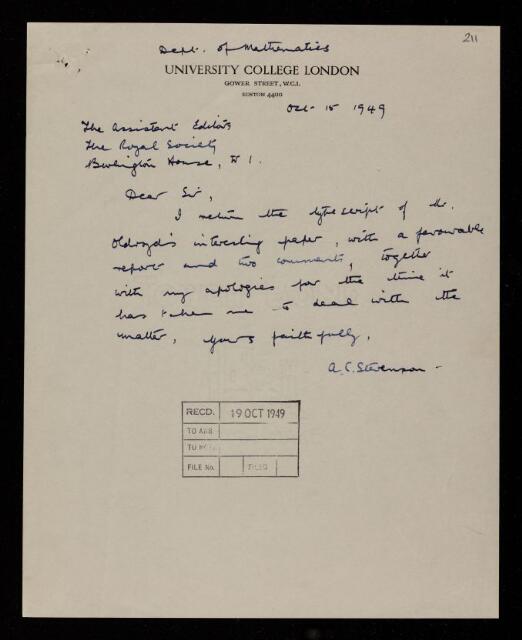 211
Dept. of Mathematics
UNIVERSITY COLLEGE LONDON
GOWER STREET, W.C.1.
EUSTON 4400
Oct 15 1949
The Assistant Editor
The Royal Society
Burlington House, W1.
Dear Sir,
I return the typescript of Mr.
Oldroyd's interesting paper, with a favourable
report and two comments, together
with my apologies for the time it
has taken me to deal with the
matter, yours faithfully,
A.C. Stevenson
RECD. 19 OCT 1949
TO
TO
FILE No. FILED